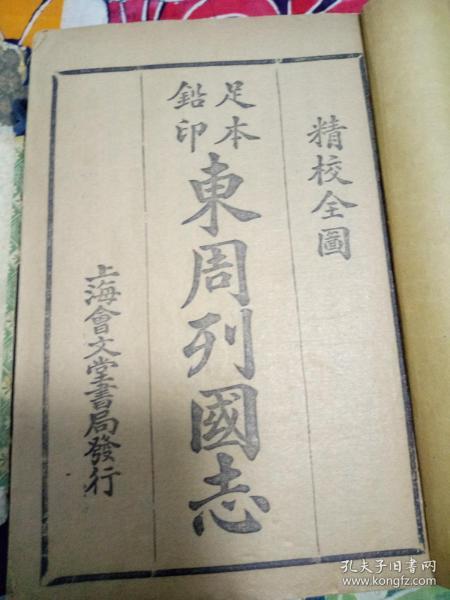 精校全圖
足本
鉛印
東周列國志
上海會文堂書局發行
孔夫子旧书网
www.kongfz.com